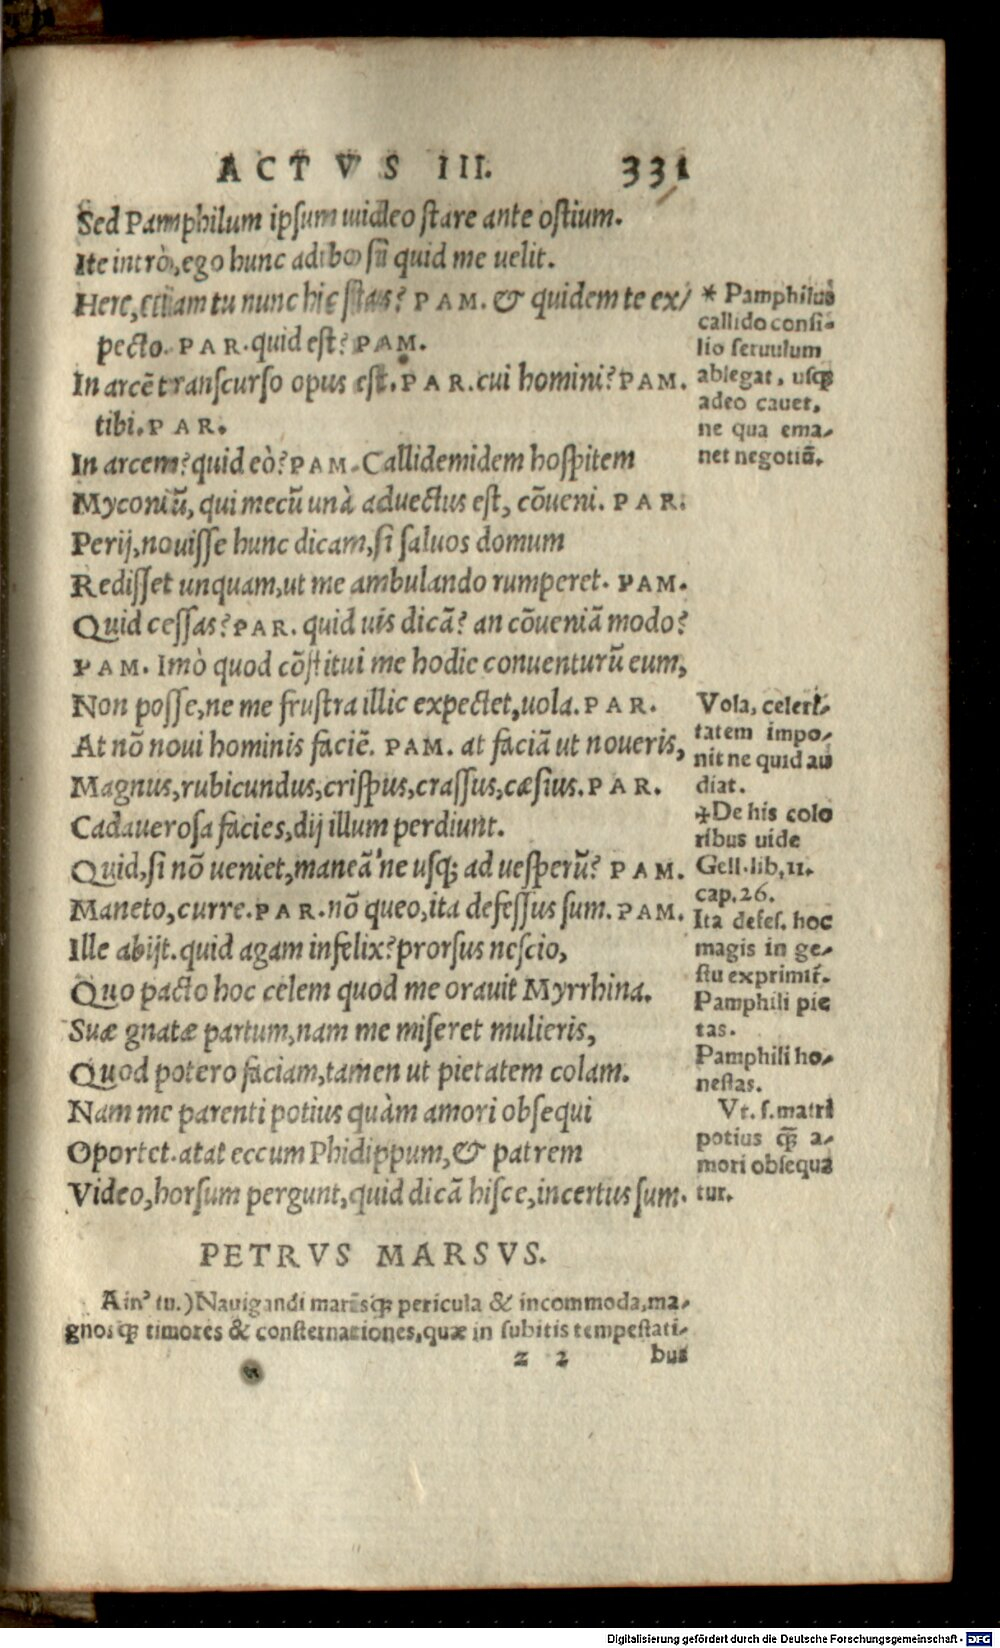 ACTVS III. 331
Sed Pamphilum ipsum uideo stare ante ostium.
Ite intrò, ego hunc adibo si quid me uelit.
Here, etiam tu nunc hic stas? PAM. & quidem te ex/
pecto. PAR. quid est? PAM.
In arcē transcurso opus est. PAR. cui homini? PAM.
tibi. PAR.
In arcem? quid eò? PAM. Callidemidem hospitem
Myconiū, qui mecū unà aduectus est, cōueni. PAR.
Perij, nouisse hunc dicam, si saluos domum
Redisset unquam, ut me ambulando rumperet. PAM.
Quid cessas? PAR. quid uis dicā? an cōueniā modo?
PAM. Imò quod cōstitui me hodie conuenturū eum,
Non posse, ne me frustra illic expectet, uola. PAR.
At nō noui hominis faciē. PAM. at faciā ut noueris,
Magnus, rubicundus, crispus, crassus, cæsius. PAR.
Cadauerosa facies, dij illum perdiunt.
Quid, si nō ueniet, maneā'ne usq; ad uesperū? PAM.
Maneto, curre. PAR. nō queo, ita defessus sum. PAM.
Ille abijt. quid agam infelix? prorsus nescio,
Quo pacto hoc celem quod me orauit Myrrhina.
Suæ gnatæ partum, nam me miseret mulieris,
Quod potero faciam, tamen ut pietatem colam.
Nam me parenti potius quàm amori obsequi
Oportet. atat eccum Phidippum, & patrem
Video, horsum pergunt, quid dicā hisce, incertus sum.
* Pamphilus
callido consi-
lio seruulum
ablegat, usq;
adeo cauet,
ne qua ema-
net negotiū.
Vola, celeri-
tatem impo-
nit ne quid au
diat.
✢De his colo
ribus uide
Gell. lib, 11.
cap. 26.
Ita defes. hoc
magis in ge-
stu exprimit̄.
Pamphili pie
tas.
Pamphili ho-
nestas.
Vt. s. matri
potius q̄ a-
mori obsequa
tur.
PETRVS MARSVS.
Ain' tu.) Nauigandi marisq; pericula & incommoda, ma-
gnosq; timores & consternationes, quæ in subitis tempestati-
z 2 bus
Digitalisierung gefördert durch die Deutsche Forschungsgemeinschaft - DFG